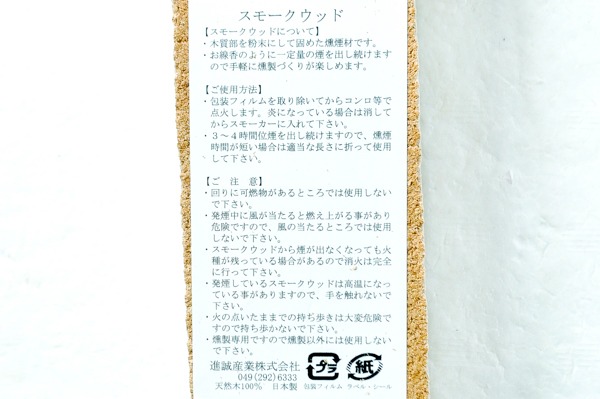 スモークウッド
【スモークウッドについて】
・木質部を粉末にして固めた燻煙材です。
・お線香のように一定量の煙を出し続けます
ので手軽に燻製づくりが楽しめます。
【ご使用方法】
・包装フィルムを取り除いてからコンロ等で
点火します。炎になっている場合は消して
からスモーカーに入れて下さい。
・３～４時間位煙を出し続けますので、燻煙
時間が短い場合は適当な長さに折って使用
して下さい。
【ご　注　意】
・回りに可燃物があるところでは使用しない
で下さい。
・発煙中に風が当たると燃え上がる事があり
危険ですので、風の当たるところでは使用
しないで下さい。
・スモークウッドから煙が出なくなっても火
種が残っている場合があるので消火は完全
に行って下さい。
・発煙しているスモークウッドは高温になっ
ている事がありますので、手を触れないで
下さい。
・火の点いたままでの持ち歩きは大変危険で
すので持ち歩かないで下さい。
・燻製専用ですので燻製以外には使用しない
で下さい。
進誠産業株式会社
049(292)6333
天然木100%　日本製
プラ
包装フィルム
紙
ラベル・シール